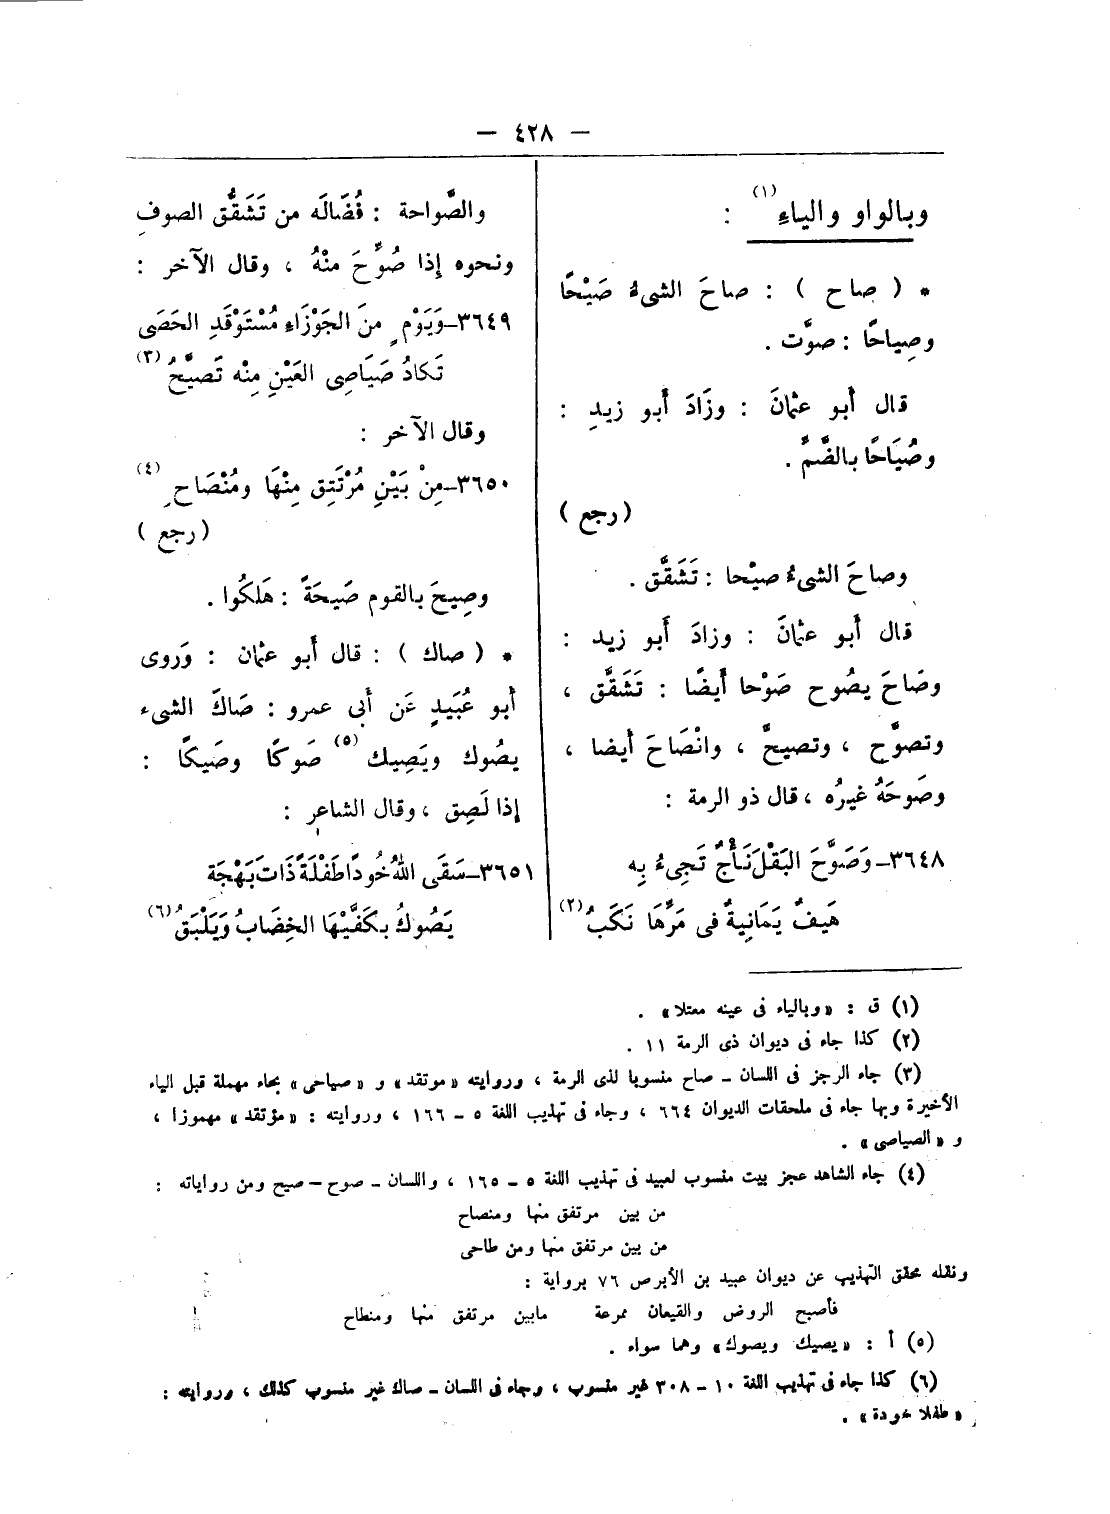 — ٤٢٨ —
وبالواو والياءِ (١) :
* ( صاح ) : صاحَ الشىءُ صَيْحًا
وصِياحًا : صوَّت .
قال أبو عثمانَ : وزَادَ أبو زيدِ :
وصُيَاحًا بالضَّمِّ .
( رجع )
وصاحَ الشىءُ صيْحا : تَشَقَّق .
قال أبو عثمانَ : وزادَ أبو زيد :
وصَاحَ يصُوح صَوْحا أيضًا : تَشَقَّق ،
وتصوَّح ، وتصيحَّ ، وانْصَاحَ أيضا ،
وصَوحَهُ غيرُه ، قال ذو الرمة :
٣٦٤٨–وَصَوَّحَ البَقْلَ نَأْجٌ تَجِىءُ بِه
هَيفٌ يَمَانِيةٌ فى مَرِّهَا نَكَبُ (٢)
والصَّواحة : فُضَالَه من تَشَقُّق الصوفِ
ونحوه إذا صُوِّحَ منْهُ ، وقال الآخر :
٣٦٤٩–وَيَوْمٍ منَ الجَوْزَاءِ مُسْتَوْقَدِ الحَصَى
تَكادُ صَيَاصِى العَيْنِ مِنْه تَصيَّحُ (٣)
وقال الآخر :
٣٦٥٠–مِنْ بَيْنِ مُرْتَتِق مِنْهَا ومُنْصَاحِ (٤)
( رجع )
وصِيحَ بالقوم صَيحَةً : هَلكُوا .
* ( صاك ) : قال أبو عثمان : وَروى
أبو عُبَيدٍ عَن أبى عمرو : صَاكَ الشىء
يصُوك ويَصِيك (٥) صَوكًا وصَيكًا :
إذا لَصِق ، وقال الشاعر :
٣٦٥١–سَقَى اللهُ خُودًا طَفْلَةً ذَاتَ بَهْجَة
يَصُوكُ بكَفَّيْهَا الخِضَابُ وَيَلْبَقُ (٦)
(١) ق : «وبالياء فى عينه معتلا» .
(٢) كذا جاء فى ديوان ذى الرمة ١١ .
(٣) جاء الرجز فى اللسان – صاح منسوبا لذى الرمة ، وروايته «موتقد» و «صياحى» بحاء مهملة قبل الياء
الأخيرة وبها جاء فى ملحقات الديوان ٦٦٤ ، وجاء فى تهذيب اللغة ٥ – ١٦٦ ، وروايته : «مؤتقد» مهموزا ،
و «الصياصى» .
(٤) جاء الشاهد عجز بيت منسوب لعبيد فى تهذيب اللغة ٥ – ١٦٥ ، واللسان – صوح – صيح ومن رواياته :
من بين مرتفق منها ومنصاح
من بين مرتفق منها ومن طاحى
ونقله محقق التهذيب عن ديوان عبيد بن الأبرص ٧٦ برواية :
فأصبح الروض والقيعان ممرعة مابين مرتفق منها ومنطاح
(٥) أ : «يصيك ويصوك» وهما سواء .
(٦) كذا جاء فى تهذيب اللغة ١٠ – ٣٠٨ غير منسوب ، وجاء فى اللسان – صاك غير منسوب كذلك ، وروايته :
«طفلا خودة» .